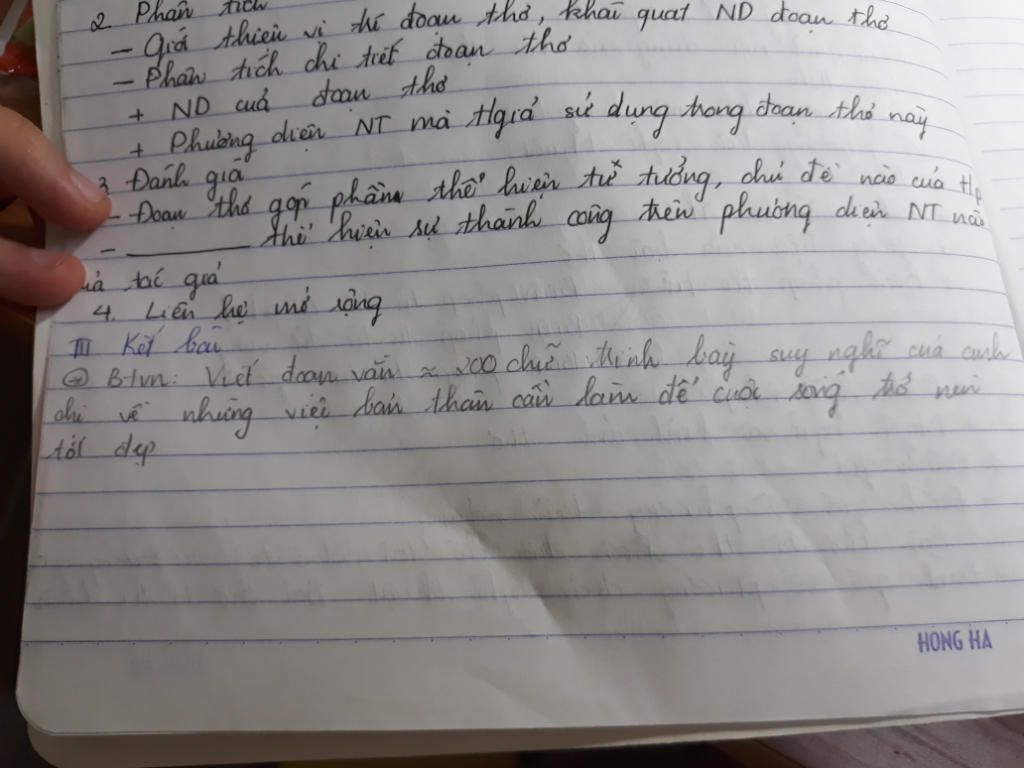 2. Phân tích
- Giới thiệu vị trí đoạn thơ, khái quát ND đoạn thơ
- Phân tích chi tiết đoạn thơ
+ ND của đoạn thơ
+ Phương diện NT mà tgiả sử dụng trong đoạn thơ này
3 Đánh giá
- Đoạn thơ góp phần thể hiện tư tưởng, chủ đề nào của tp
- ________ thể hiện sự thành công trên phương diện NT nào
của tác giả
4. Liên hệ mở rộng
III Kết bài
Btvn: Viết đoạn văn ≈ 200 chữ trình bày suy nghĩ của anh
chị về những việc bản thân cần làm để cuộc sống trở nên
tốt đẹp
HONG HA